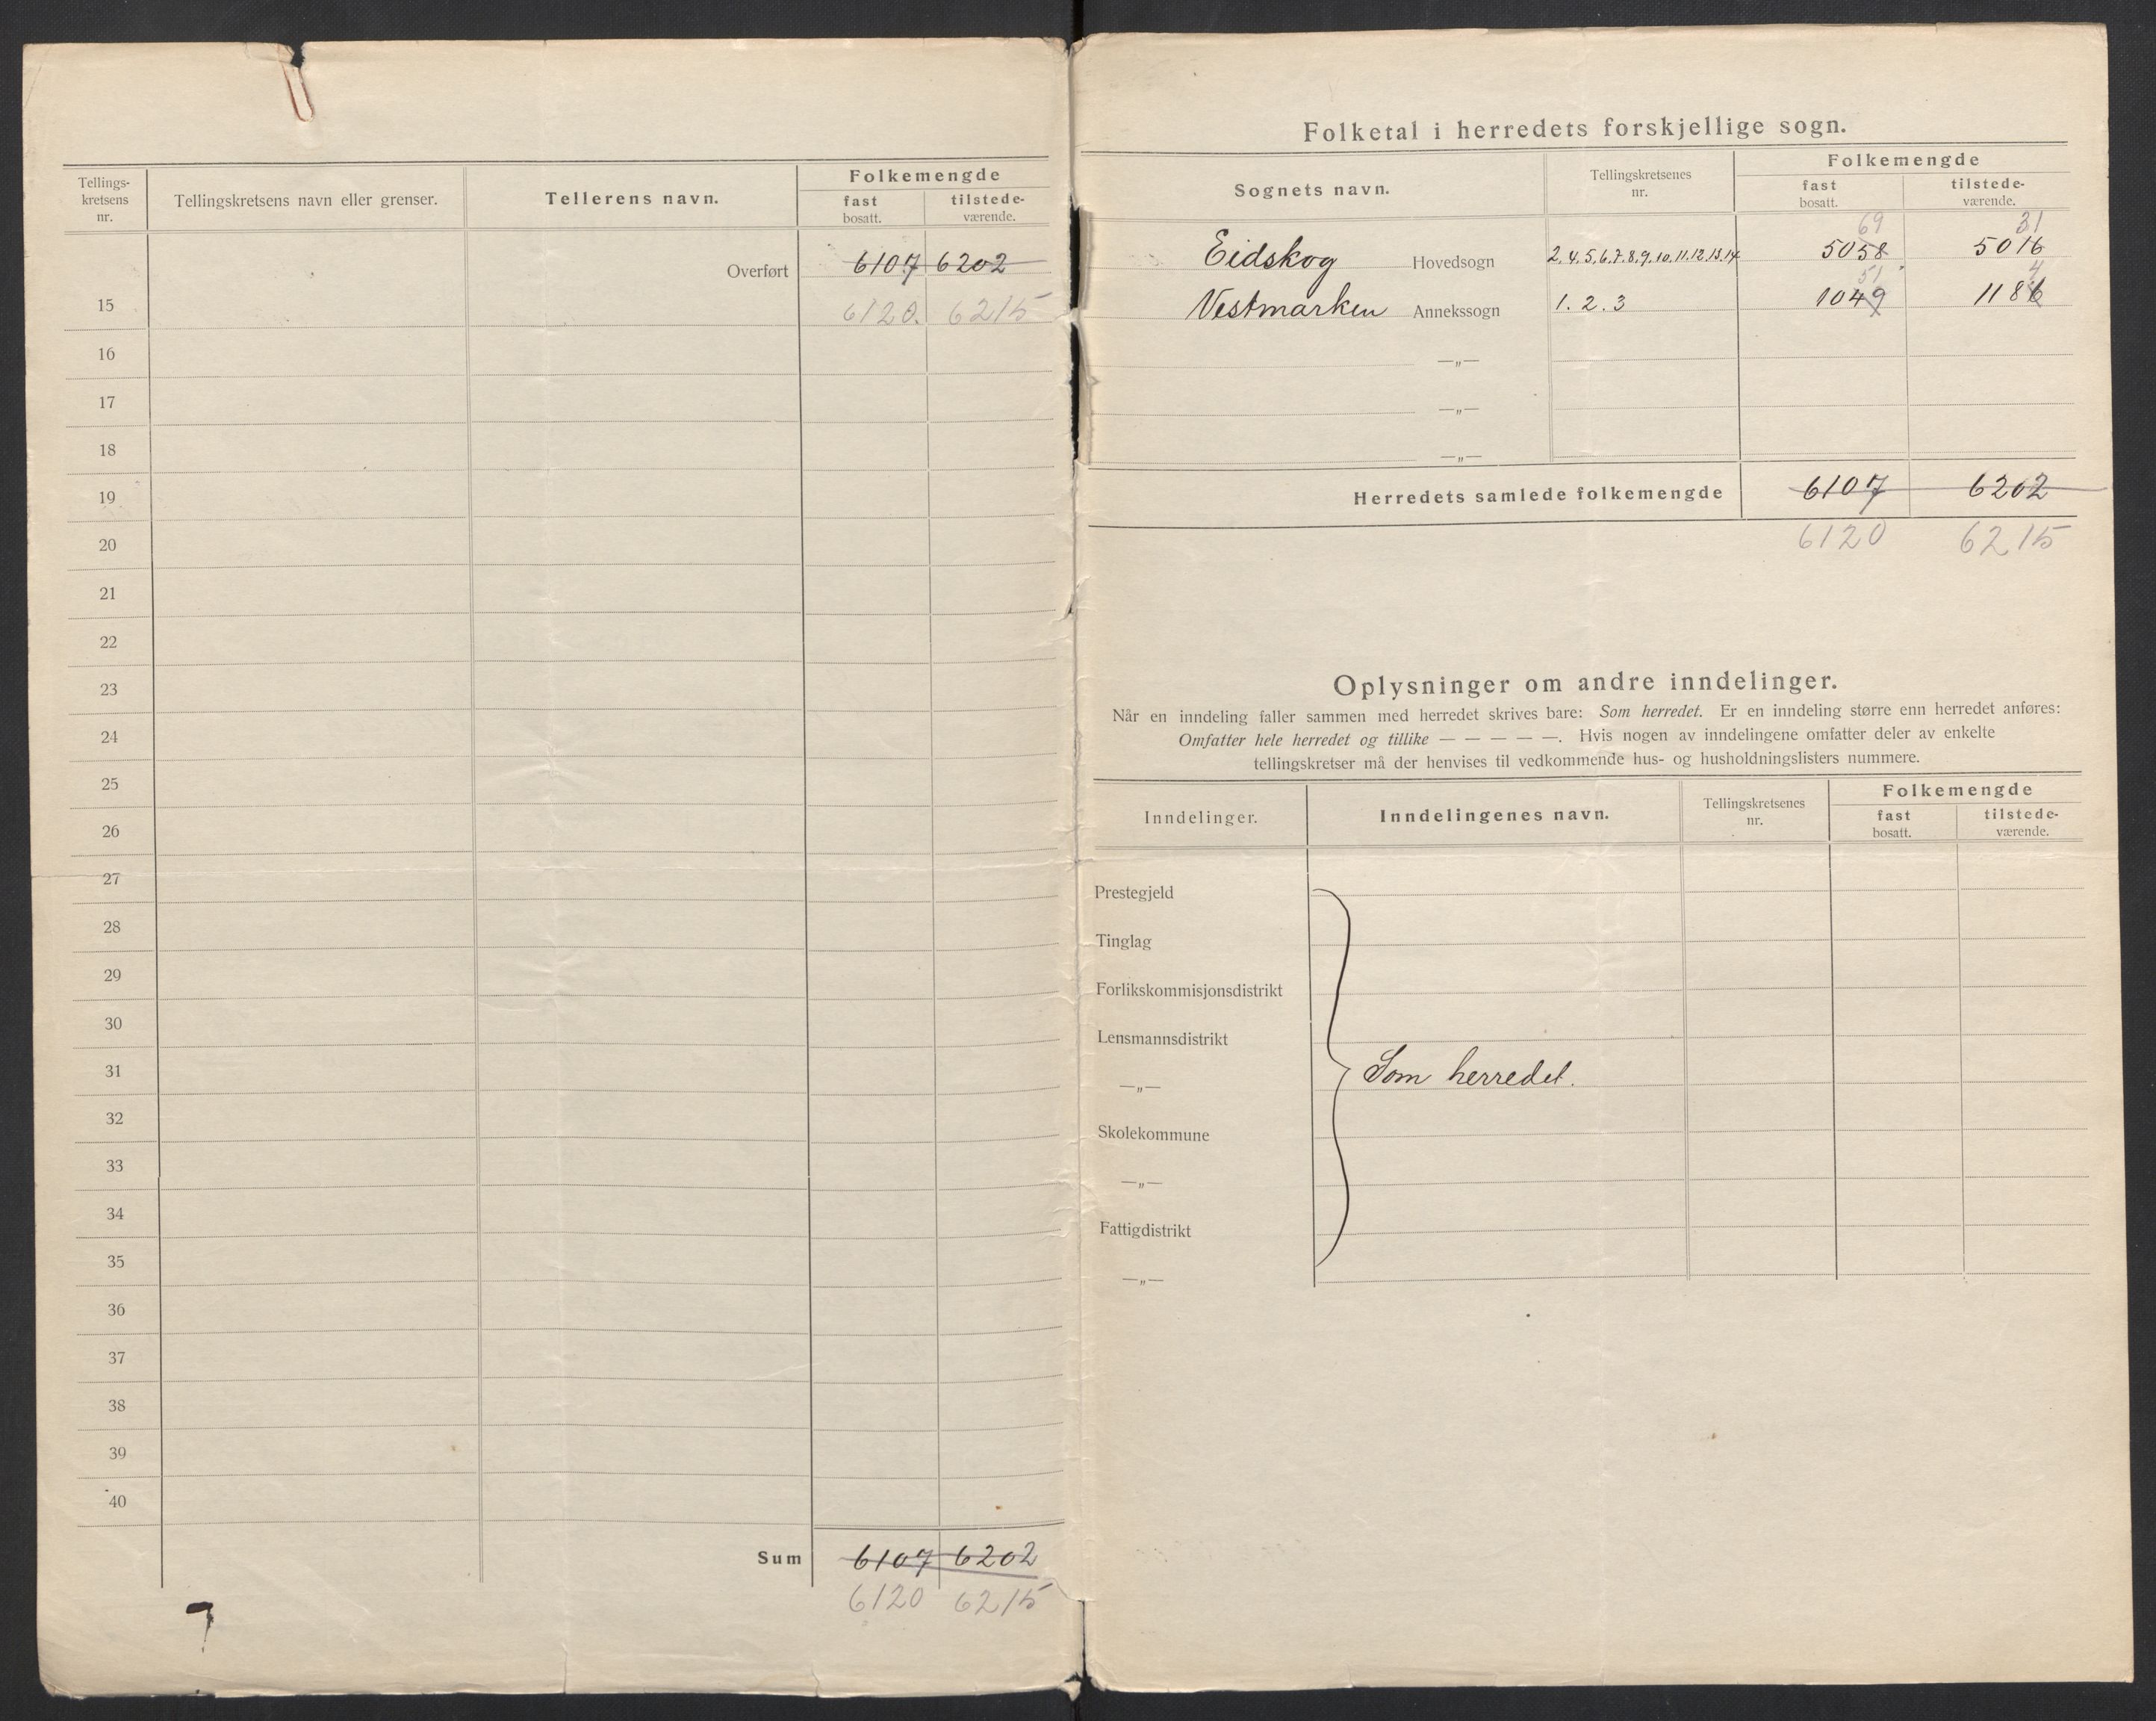 Tellings-
kretsens
nr.
Tellingskretsens navn eller grenser.
Tellerens navn.
Folkemengde
fast
bosatt.
tilstede-
værende.
Overført 6107 6202
15 6120. 6215
16
17
18
19
20
21
22
23
24
25
26
27
28
29
30
31
32
33
34
35
36
37
38
39
40
Sum 6107 6202
6120 6215
Folketal i herredets forskjellige sogn.
Sognets navn.
Tellingskretsenes
nr.
Folkemengde
fast
bosatt.
tilstede-
værende.
69 31
Eidskog Hovedsogn 2,4,5,6,7,8,9,10,11,12,13,14 5058 5016
51 4
Vestmarken Annekssogn 1. 2. 3 1049 1186
—„—
—„—
—„—
Herredets samlede folkemengde 6107 6202
6120 6215
Oplysninger om andre inndelinger.
Når en inndeling faller sammen med herredet skrives bare: Som herredet. Er en inndeling større enn herredet anføres:
Omfatter hele herredet og tillike — — — — —. Hvis nogen av inndelingene omfatter deler av enkelte
tellingskretser må der henvises til vedkommende hus- og husholdningslisters nummere.
Inndelinger.
Inndelingenes navn.
Tellingskretsenes
nr.
Folkemengde
fast
bosatt.
tilstede-
værende.
Prestegjeld
Tinglag
Forlikskommisjonsdistrikt
Lensmannsdistrikt
—„— Som herredet.
Skolekommune
—„—
Fattigdistrikt
—„—